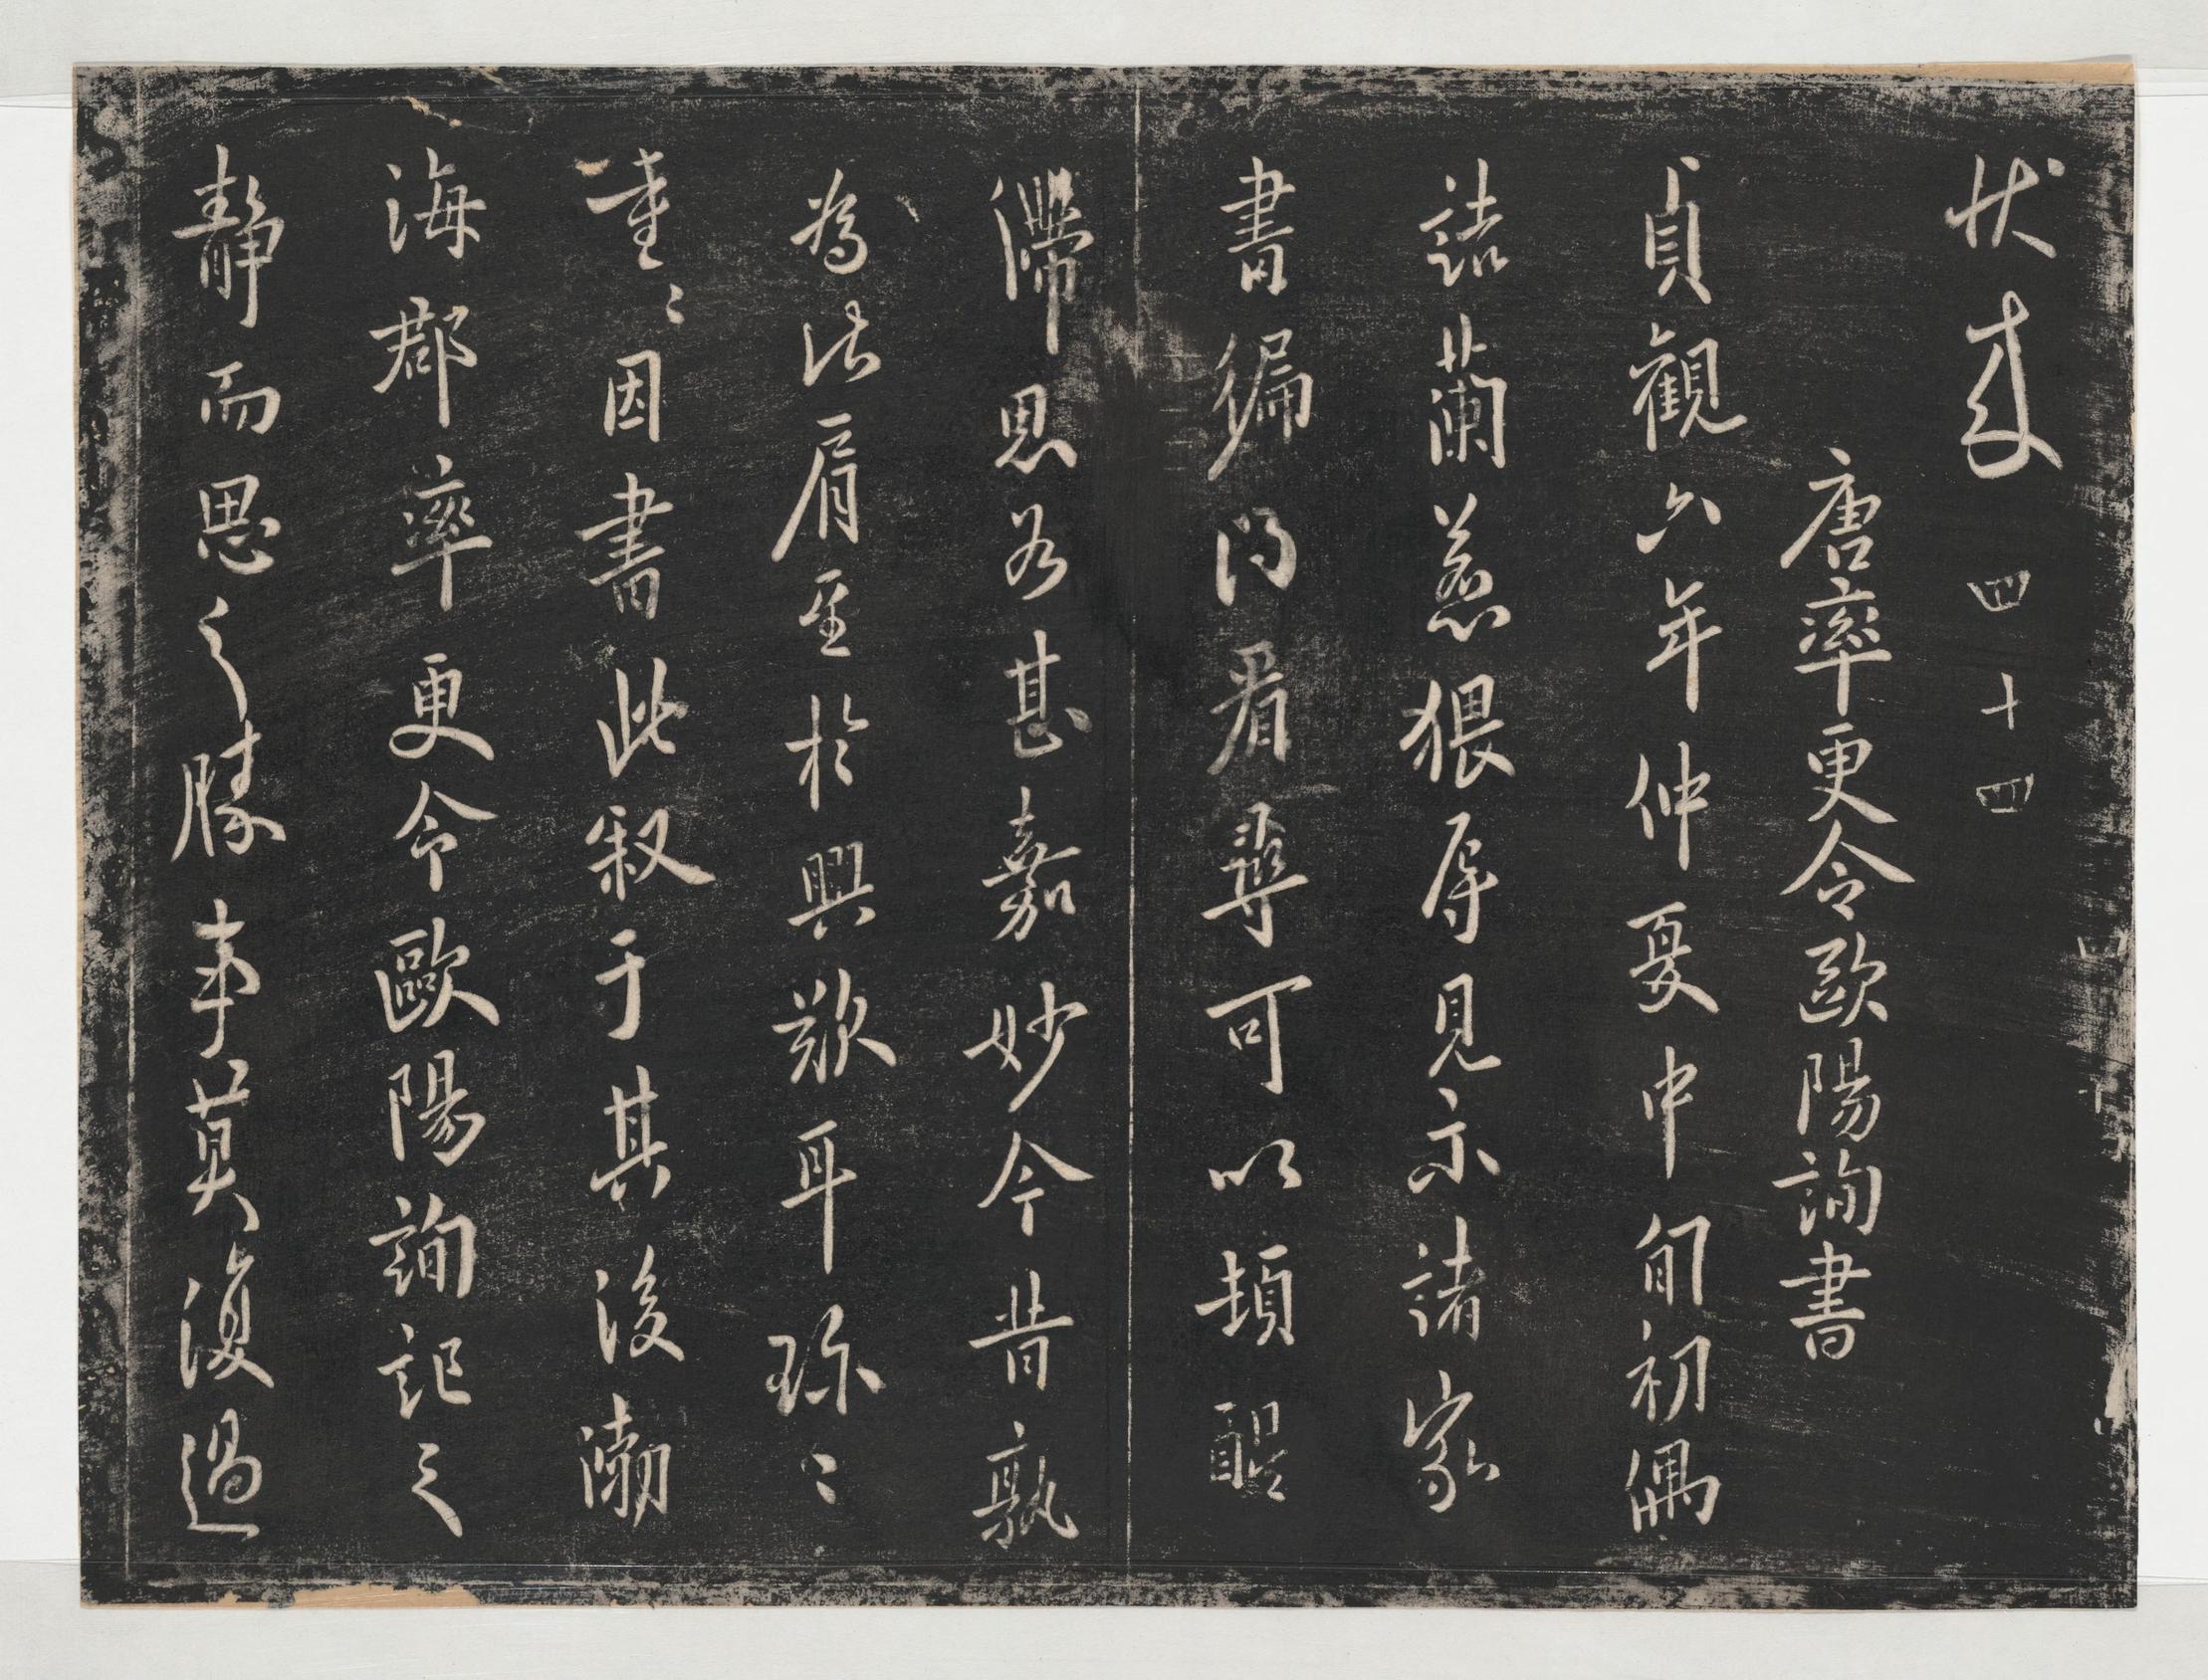 伏(𢖻) 四十四
唐率更令歐陽詢書
貞觀六年仲夏中旬初偶
詣蘭若狠辱見示諸家
書徧得看尋可以頓醒
滯思為甚嘉妙今昔孰
為比肩至於興歎耳珎〻
重〻因書此叙于其後渤
海郡率更令歐陽詢記之
靜而思之勝事莫復過